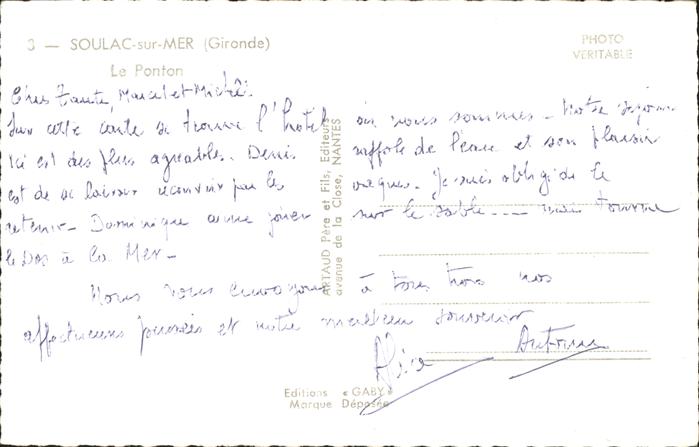 3 — SOULAC-sur-MER (Gironde)
Le Ponton
PHOTO
VERITABLE
Chers Tante, Marcel et Michel
Sur cette carte se trouve l'hotel où nous sommes - Notre séjour
Ici est des plus agréables. Denis raffole de l'eau et son plaisir
est de se laisser recouvrir par les vagues. Je suis obligé de le
retenir - Dominique aime jouer sur le sable --- mais tourne
le Dos à la Mer -
Nous vous envoyons à tous trois nos
affectueuses pensées et notre meilleur souvenir
Alice Antoine
ARTAUD Père et Fils, Editeurs
avenue de la Close, NANTES
Editions « GABY »
Marque Déposée